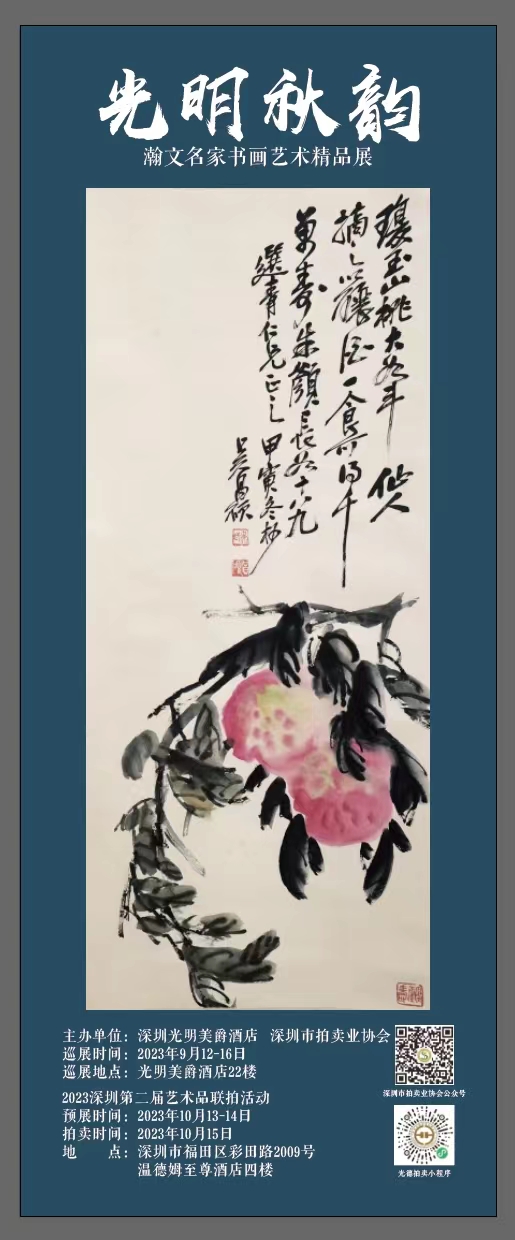 光明秋韵
瀚文名家书画艺术精品展
瓊玉山桃大如斗 仙人
摘之以釀酒一食可得千
萬壽朱顏長如十八九
選青仁兄正之 甲寅冬杪
吴昌碩
主办单位：深圳光明美爵酒店 深圳市拍卖业协会
巡展时间：2023年9月12-16日
巡展地点：光明美爵酒店22楼
2023深圳第二届艺术品联拍活动
预展时间：2023年10月13-14日
拍卖时间：2023年10月15日
地 点：深圳市福田区彩田路2009号
温德姆至尊酒店四楼
深圳市拍卖业协会公众号
光德拍卖小程序